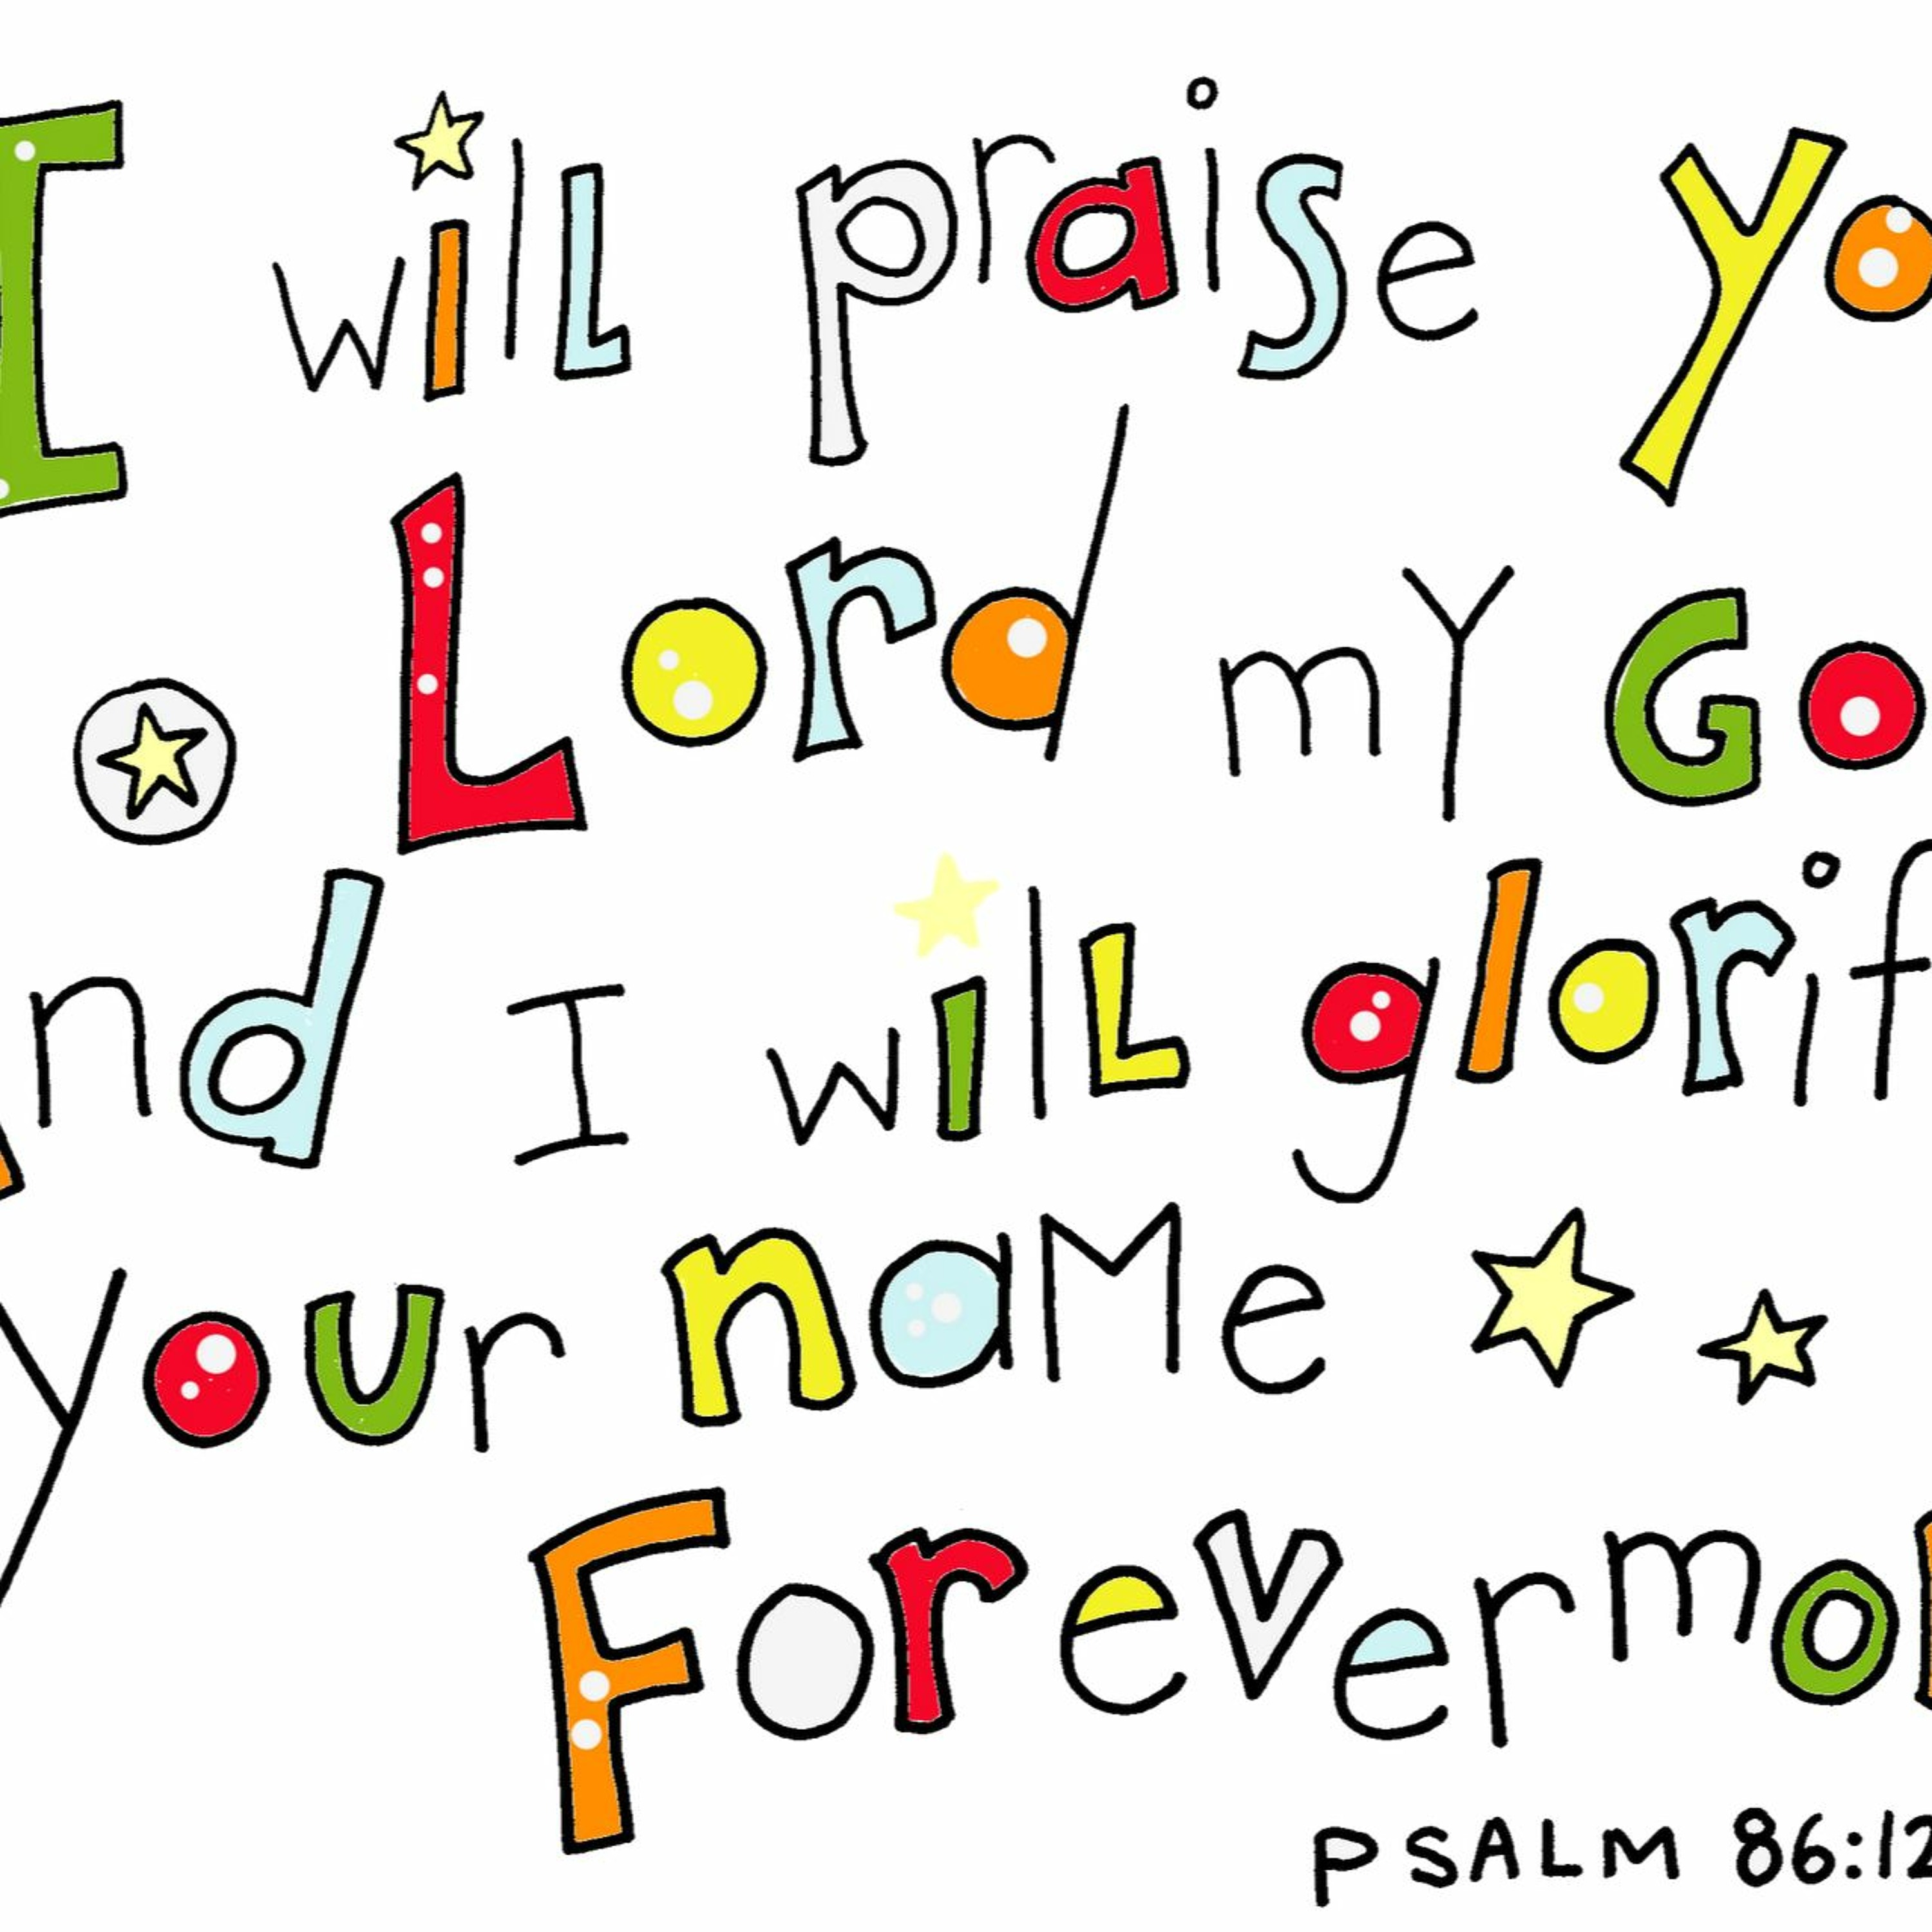 I will praise yo
o Lord my Go
nd I will glorif
your name
Forevermor
PSALM 86:12